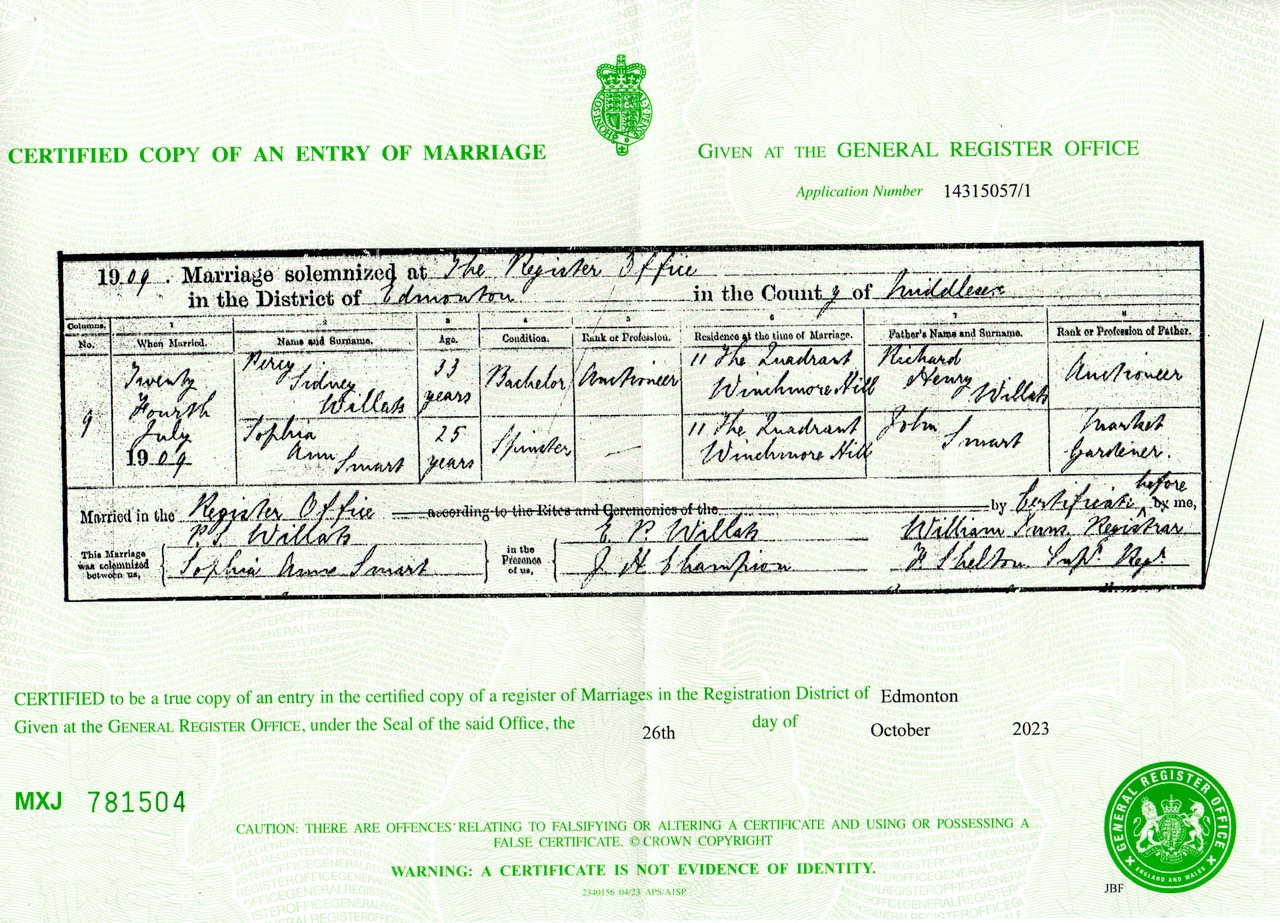 CERTIFIED COPY OF AN ENTRY OF MARRIAGE
GIVEN AT THE GENERAL REGISTER OFFICE
Application Number 14315057/1
1909. Marriage solemnized at The Register Office
in the District of Edmonton in the County of Middlesex
Columns. 1 2 3 4 5 6 7 8
No. When Married. Name and Surname. Age. Condition. Rank or Profession. Residence at the time of Marriage. Father's Name and Surname. Rank or Profession of Father.
9 Twenty Fourth July 1909
Percy Sidney Willats 33 years Bachelor Auctioneer 11 The Quadrant Winchmore Hill Richard Henry Willats Auctioneer
Sophia Ann Smart 25 years Spinster — 11 The Quadrant Winchmore Hill John Smart Market Gardener.
Married in the Register Office according to the Rites and Ceremonies of the by Certificate before by me,
This Marriage was solemnized between us,
P S Willats
Sophia Anne Smart
in the Presence of us,
E. P. Willats
J. H. Champion
William Registrar
F. Shelton Supt. Regr.
CERTIFIED to be a true copy of an entry in the certified copy of a register of Marriages in the Registration District of Edmonton
Given at the GENERAL REGISTER OFFICE, under the Seal of the said Office, the 26th day of October 2023
MXJ 781504
CAUTION: THERE ARE OFFENCES RELATING TO FALSIFYING OR ALTERING A CERTIFICATE AND USING OR POSSESSING A
FALSE CERTIFICATE. © CROWN COPYRIGHT
WARNING: A CERTIFICATE IS NOT EVIDENCE OF IDENTITY.
2340156 04/23 APS/A1SP
JBF
GENERAL REGISTER OFFICE
ENGLAND AND WALES